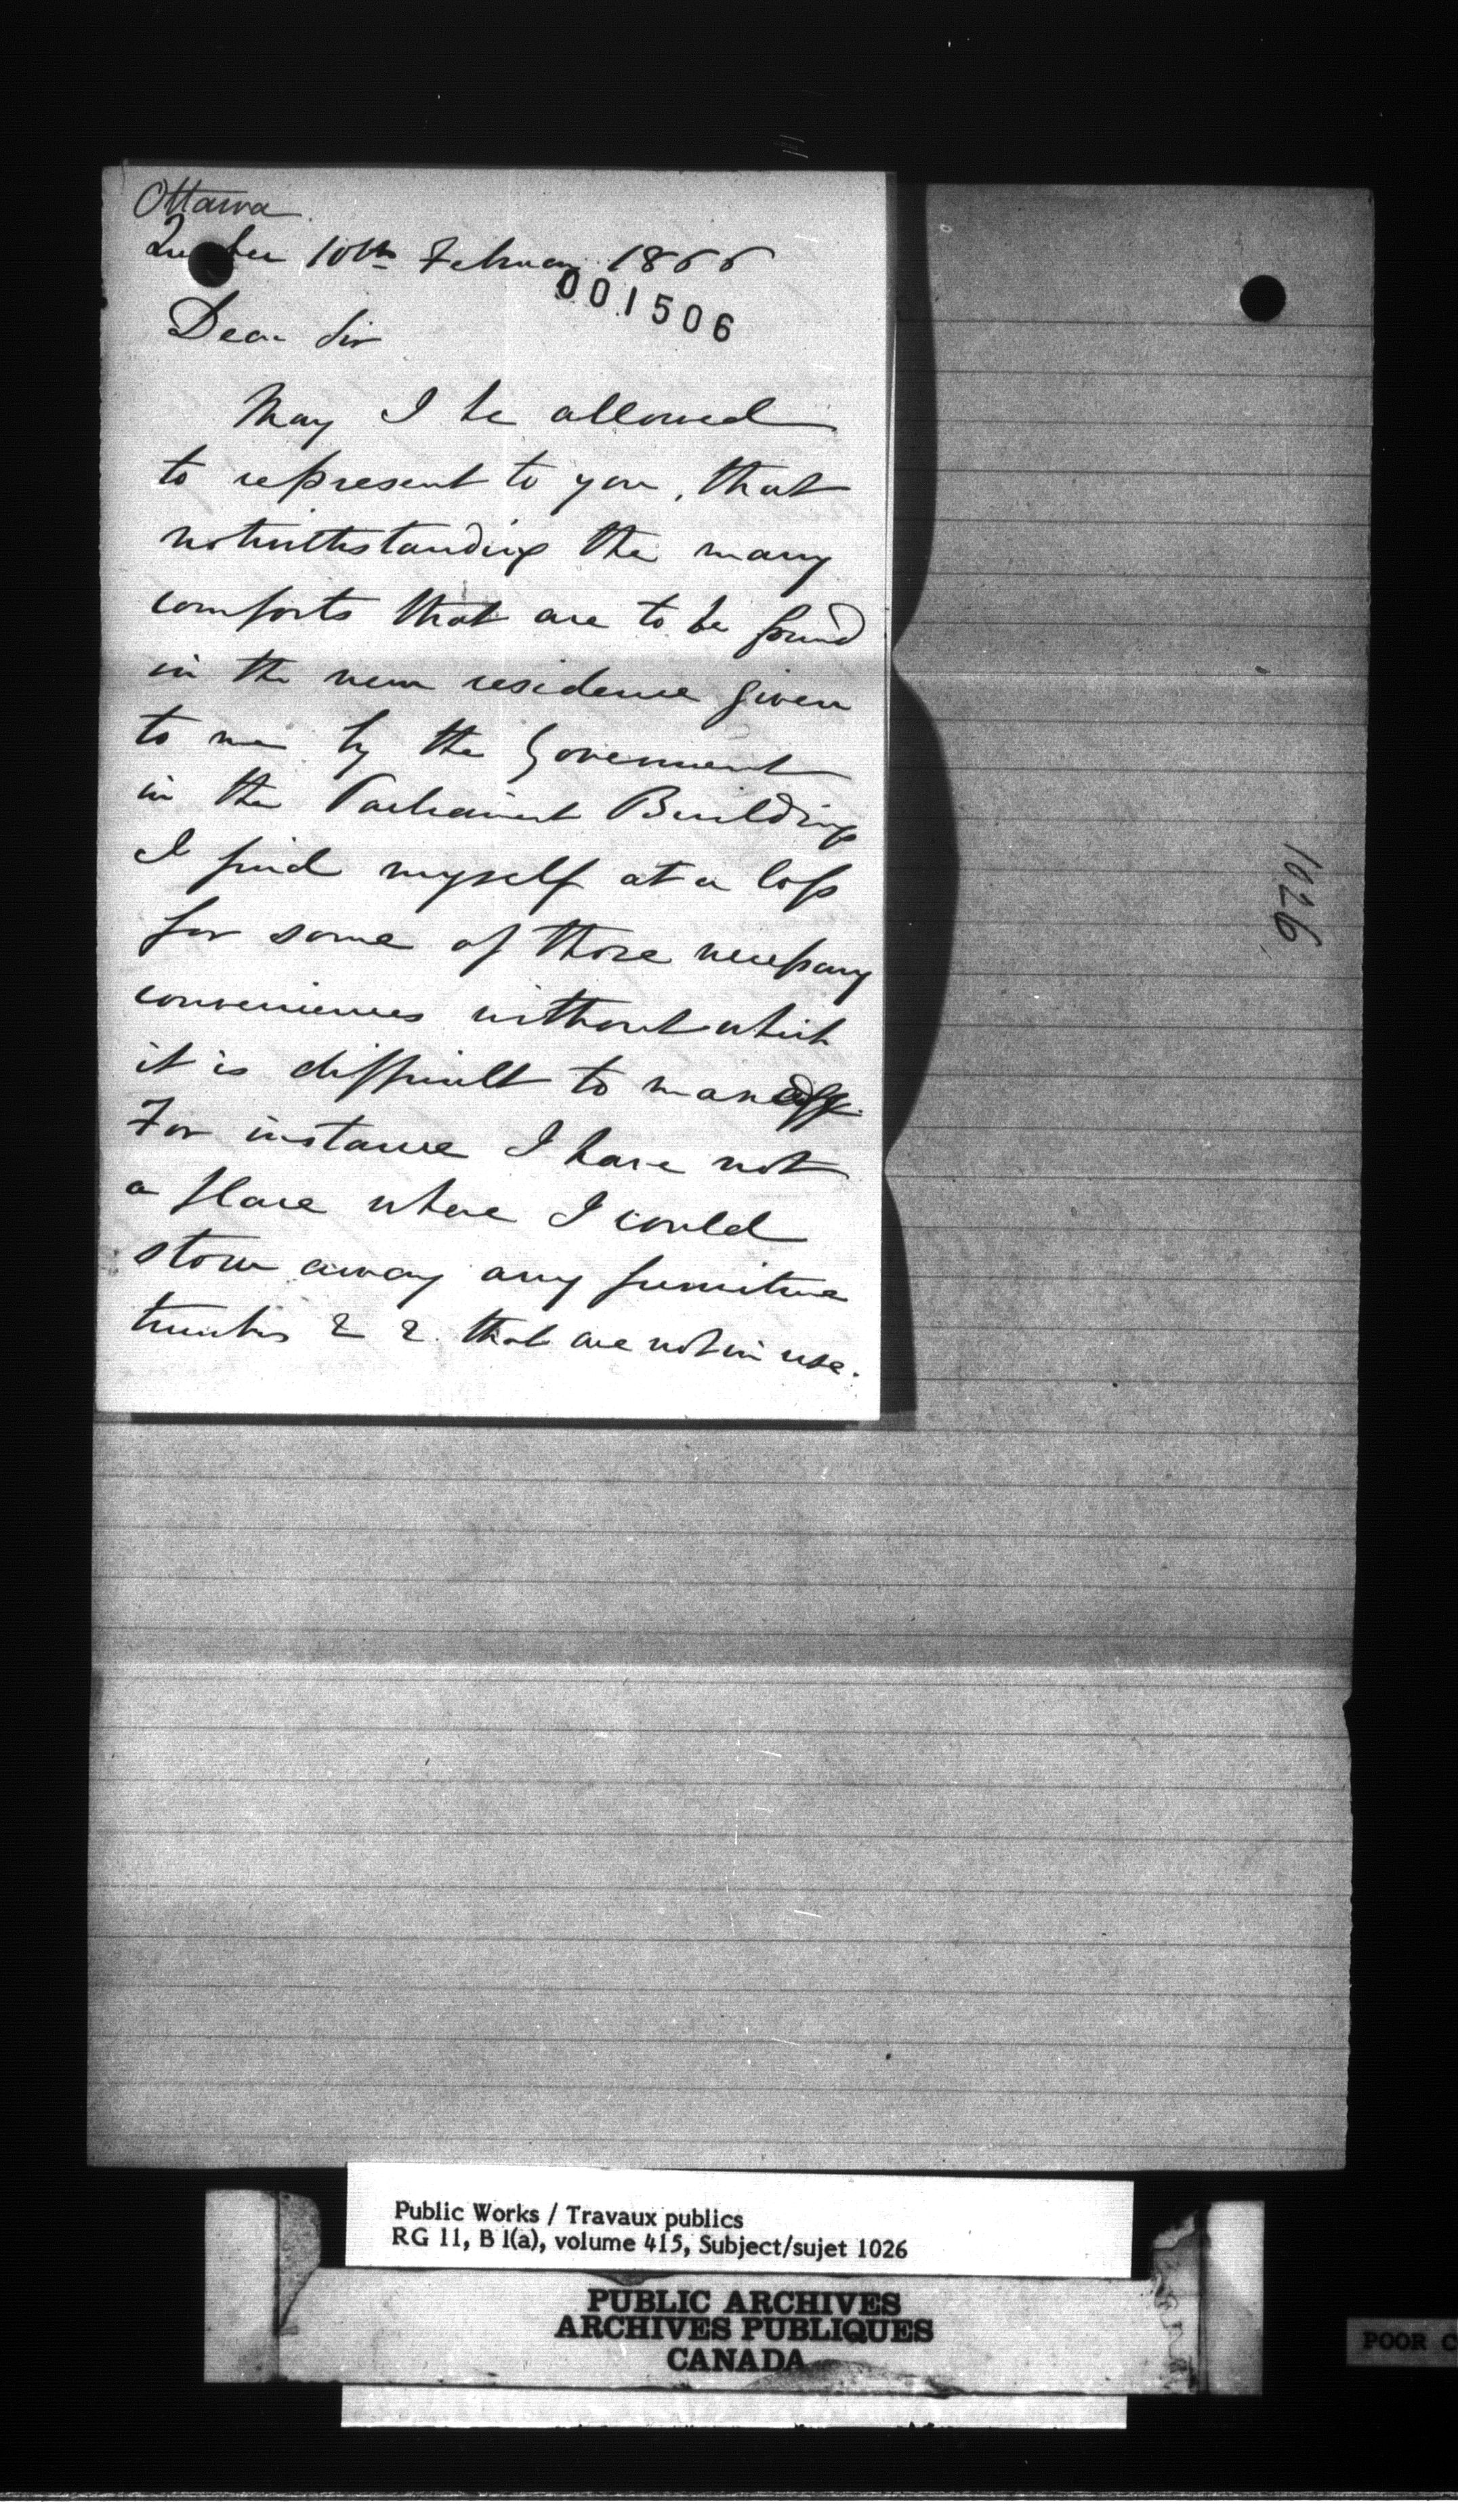 Ottawa
Quebec 10th February 1866
001506
Dear Sir
May I be allowed
to represent to you, that
notwithstanding the many
comforts that are to be found
in the new residence given
to me by the Government
in the Parliament Buildings
I find myself at a loss
for some of those necessary
conveniences without which
it is difficult to manage.
For instance I have not
a place where I could
stow away any furniture
trunks & &. that are not in use.
1026
Public Works / Travaux publics
RG 11, B 1(a), volume 415, Subject/sujet 1026
PUBLIC ARCHIVES
ARCHIVES PUBLIQUES
CANADA
POOR C